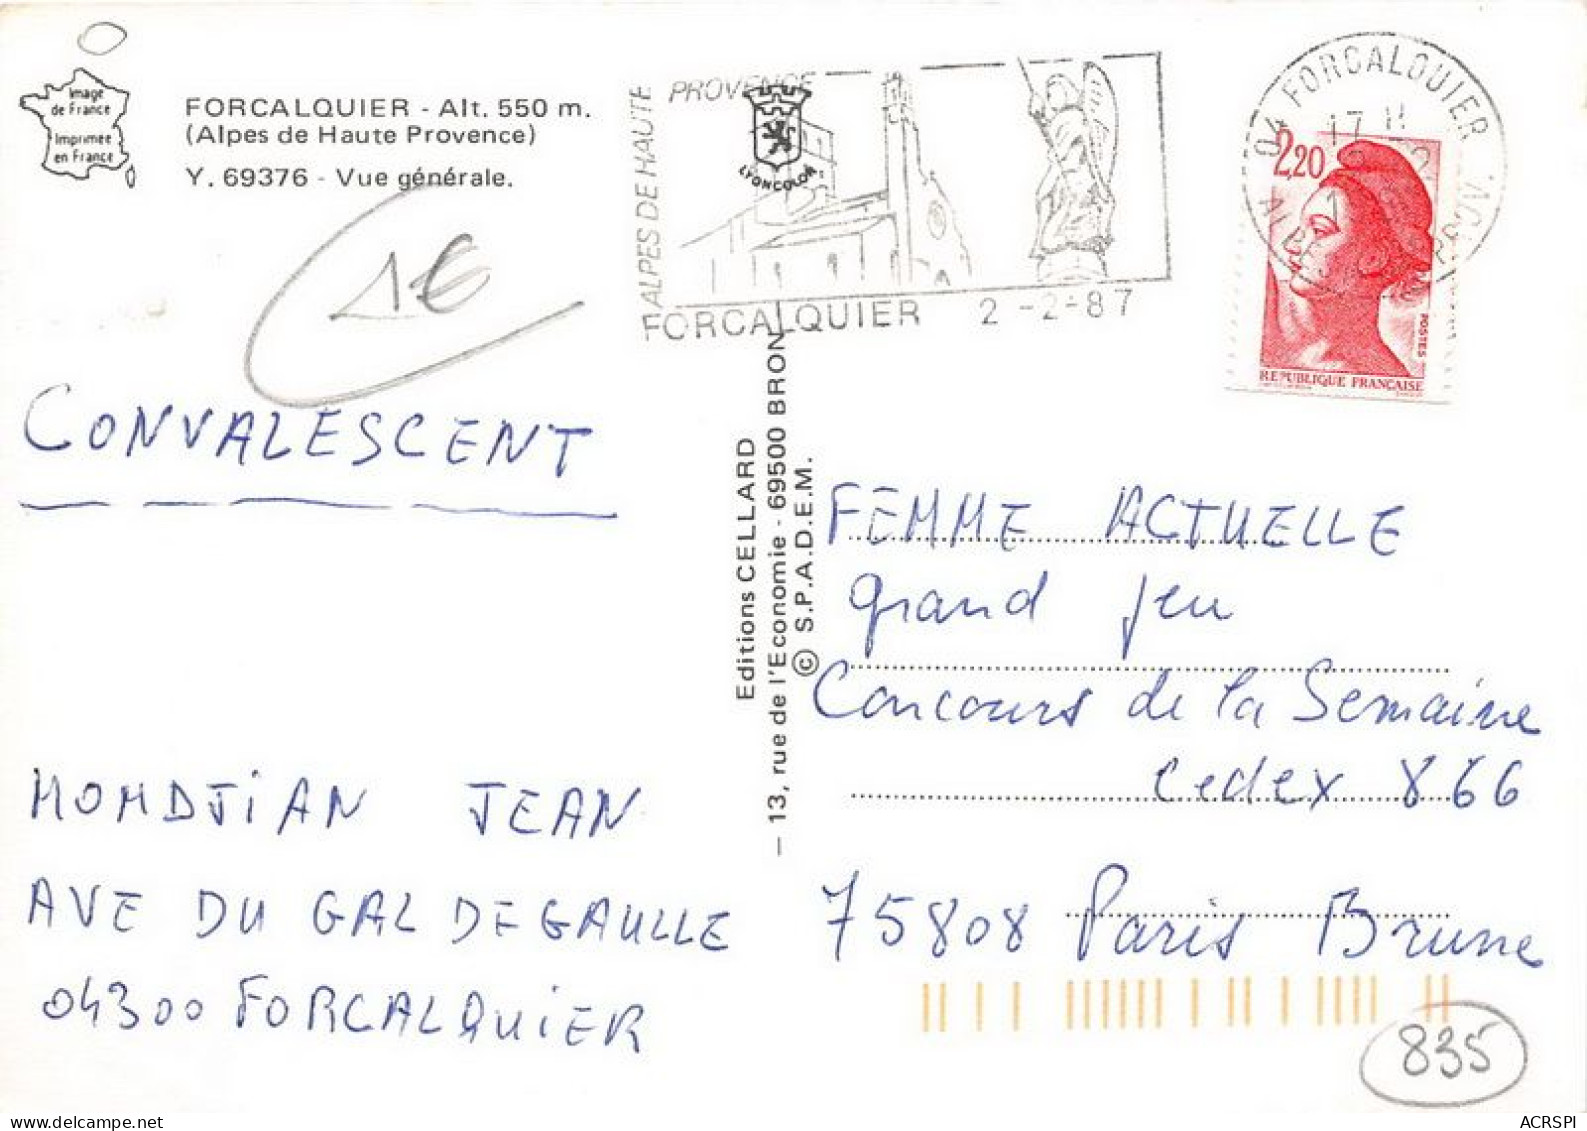 Image
de France
Imprimée
en France
FORCALQUIER - Alt. 550 m.
(Alpes de Haute Provence)
Y. 69376 - Vue générale.
1€
CONVALESCENT
MOMDJiAN JEAN
AVE DU GAL DEGAULLE
04300 FORCALQUiER
ALPES DE HAUTE
PROVENCE
LYONCOLOR
FORCALQUIER 2-2-87
04 FORCALQUIER
17 H
2,20
POSTES
REPUBLIQUE FRANÇAISE
Editions CELLARD
— 13, rue de l'Economie - 69500 BRON
© S.P.A.D.E.M.
FEMME ACTUELLE
grand jeu
Concours de la Semaine
Cedex 866
75808 Paris Brune
835
delcampe.net
ACRSPI